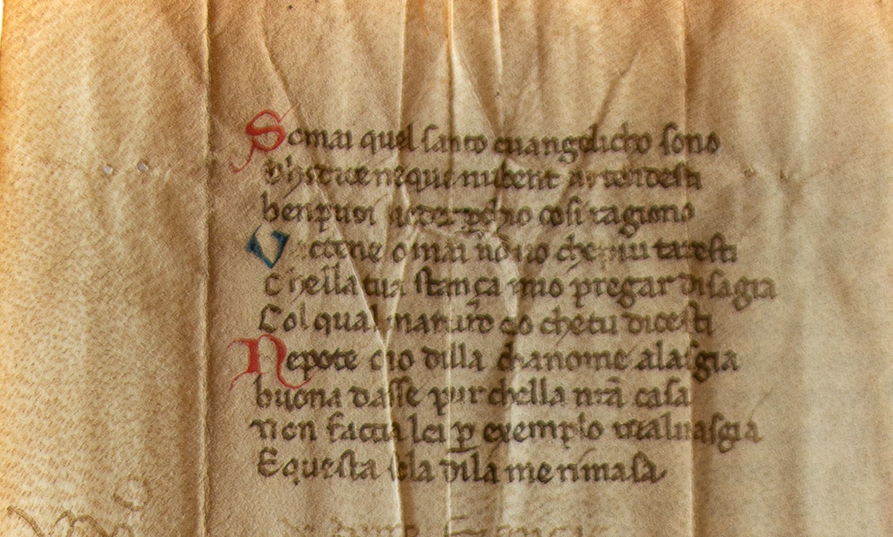 Se mai quel santo euangelicho sono
Che dice neque nubent intendesti
ben puoi ueder perchio cosi ragiono
Vattene omai non uo che piu taresti
Chella tua stança mio pregar disagia
Col qual maturo cio che tu dicesti
Nepote cio dilla chanome alasgia
buona dasse pur chella nrã casa
non faccia lei ꝑ exemplo maluasgia
E questa sola dila me rimasa